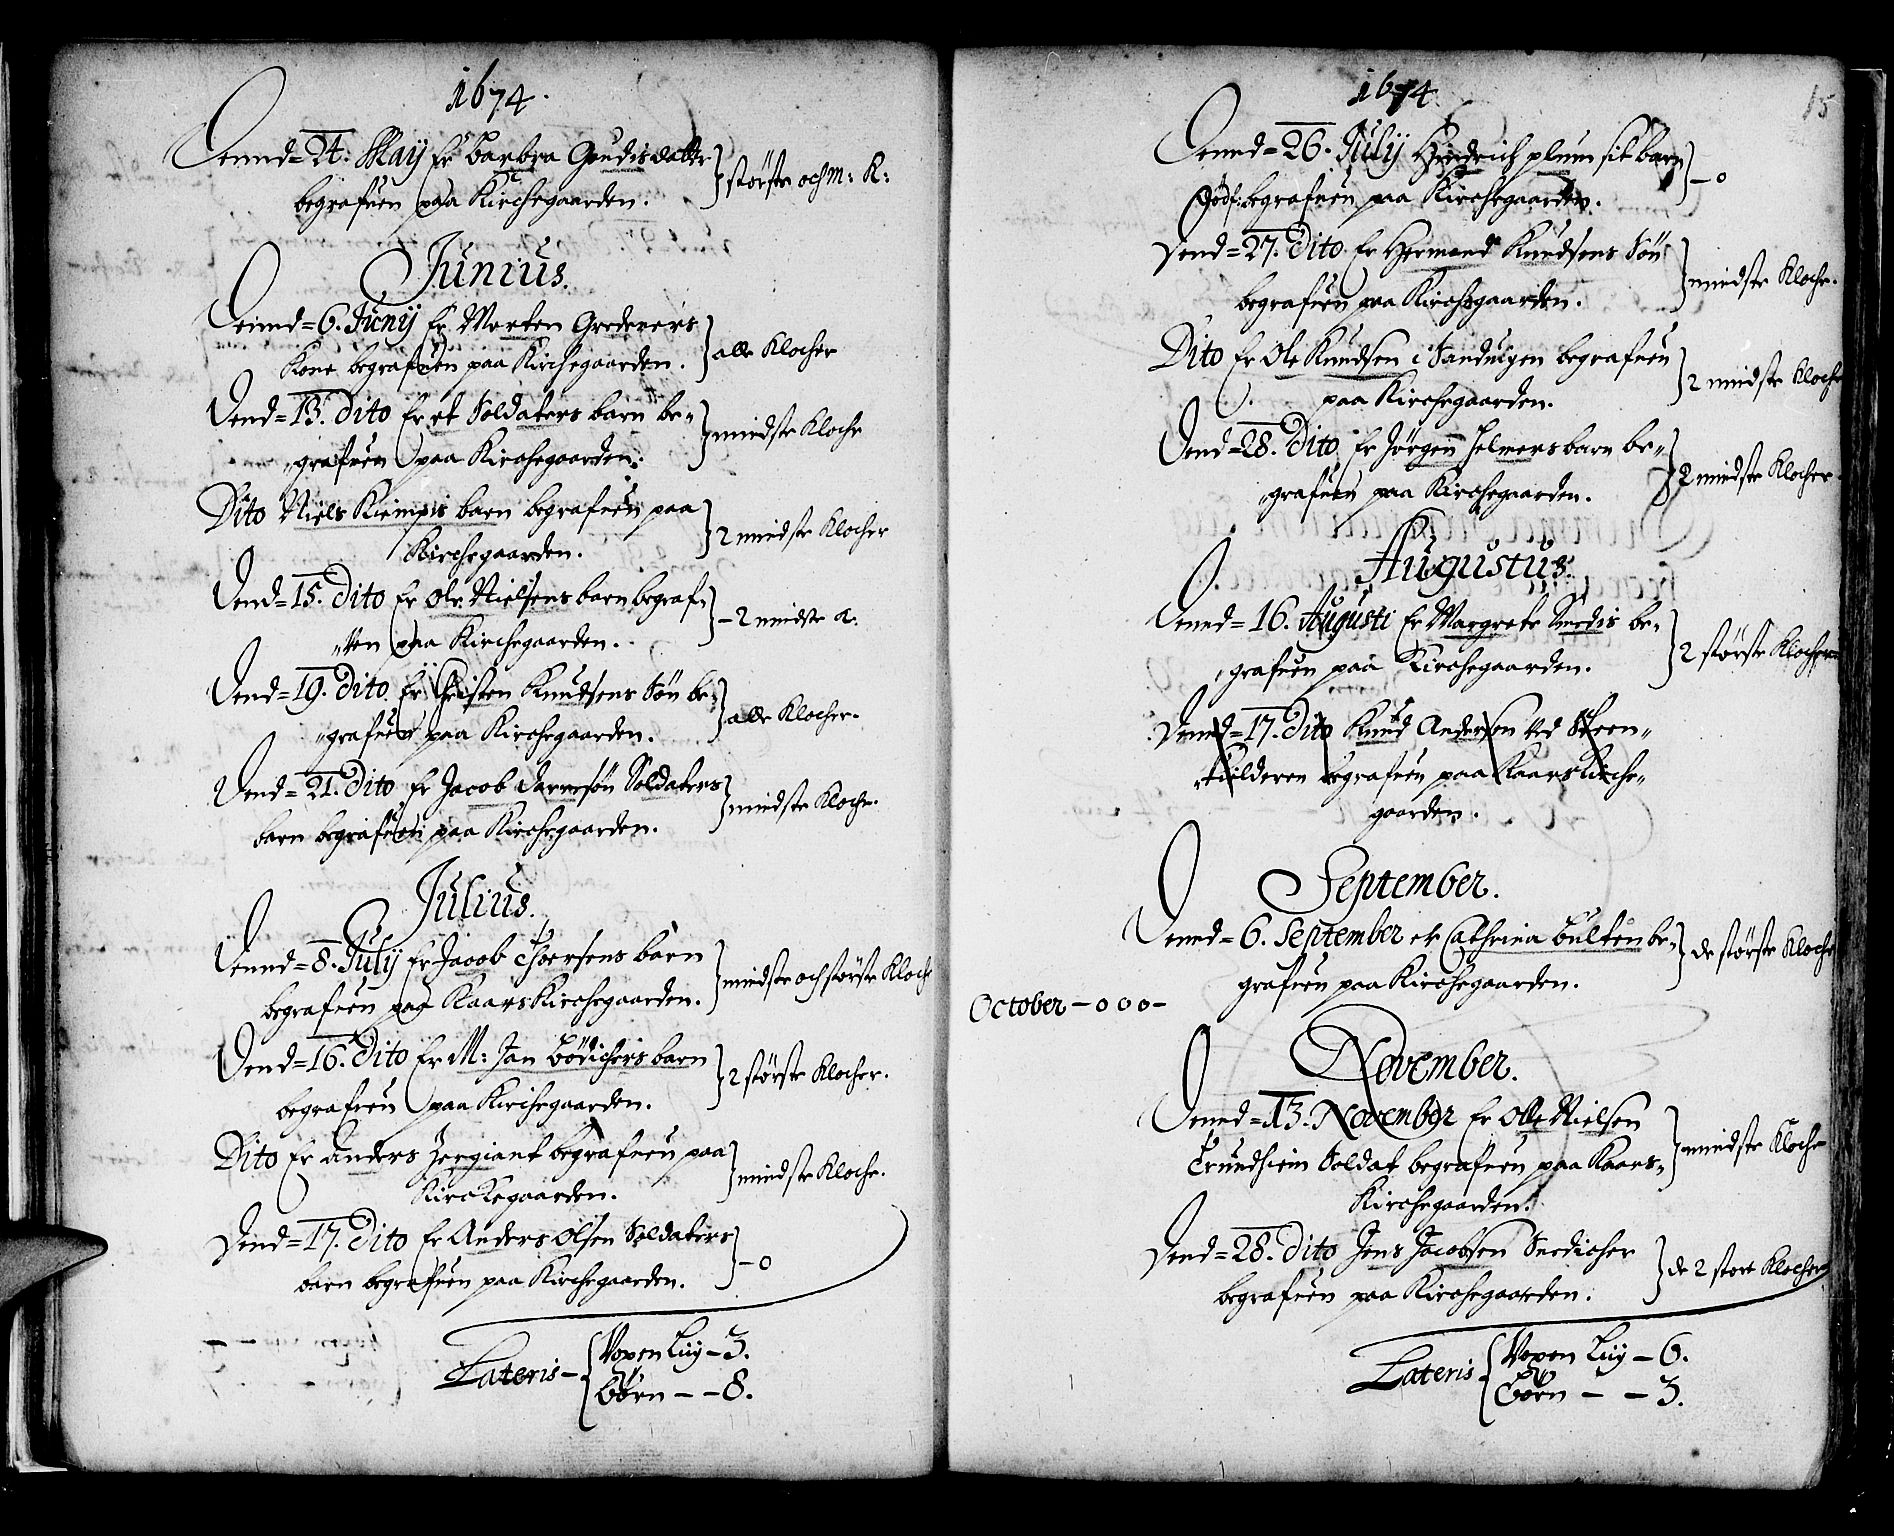 1674.
Dennd=24. Maij Er Barbra Gundisdatter
begrafuen paa Kirchegaarden. } störste och m: K:
Junius.
Dennd=6. Junij Er Morten Grederers
Kone begrafuen paa Kirchegaarden. } alle Klocher
Dend=13. Dito Er et Soldaters barn be-
grafuen paa Kirchegaarden. } mindste Kloche
Dito Niels Kiempis barn begrafuen paa
Kirchegaarden. } 2 mindste Klocher
Dend=15. Dito Er Ole Nielsens barn begraf-
uen paa Kirchegaarden. } - 2 mindste a:
Dend=19. Dito Er Christen Knudsens Sön be-
grafuen paa Kirchegaarden. } alle Klocher.
Dend=21. Dito Er Jacob Larsesön Soldaters
barn begrafuen paa Kirchegaarden. } mindste Kloche.
Julius.
Dennd=8. Julij Er Jacob Iversens barn
begrafuen paa Kaars Kirchegaarden. } mindste och störste Kloch
Dend=16. Dito Er M: Jan Bödichers barn
begrafuen paa Kirchegaarden. } 2 störste Klocher.
Dito Er Anders Zergiant begrafuen paa
Kirckegaarden. } mindste Kloche.
Dend=17. Dito Er Anders Olsen Soldaters
barn begrafuen paa Kirchegaarden. } - 0
Lateris - { Voxen Luy - 3.
Börn - - 8.
15
1674
Dennd=26. Julij Hindrich plum sit barn
Dödf: begrafuen paa Kirchegaarden. } - 0
Dend=27. Dito Er Hermand Knudsens Sön
begrafuen paa Kirchegaarden. } mindste Kloche.
Dito Er Ole Knudsen i Sanduigen begrafuen
paa Kirchegaarden. } 2 mindste Kloche
Dend=28. Dito Er Jörgen Helmers barn be-
grafuen paa Kirchegaarden. } 2 mindste Klocher.
Augustus.
Dennd=16. Augusti Er Margrete Smedis be-
grafuen paa Kirchegaarden. } 2 störste Klocher
Dennd=17. Dito Knud Andersen ved Steen-
kielderen begrafuen paa Kaars Kirche-
gaarden.
September.
Dennd=6. September er Cathrina Bulten be-
grafuen paa Kirchegaarden. } de störste Kloche
October - 0 0 0 -
November.
Dennd=13. November Er Olle Nielsen
Trundhiem Soldat begrafuen paa Kaars-
Kirchegaarden. } mindste Kloche
Dend=28. Dito Jens Jacobsen Snedicher
begrafuen paa Kirchegaarden. } de 2 store Klocher
Lateris { Voxen Luy - 6.
Börn - - 3.